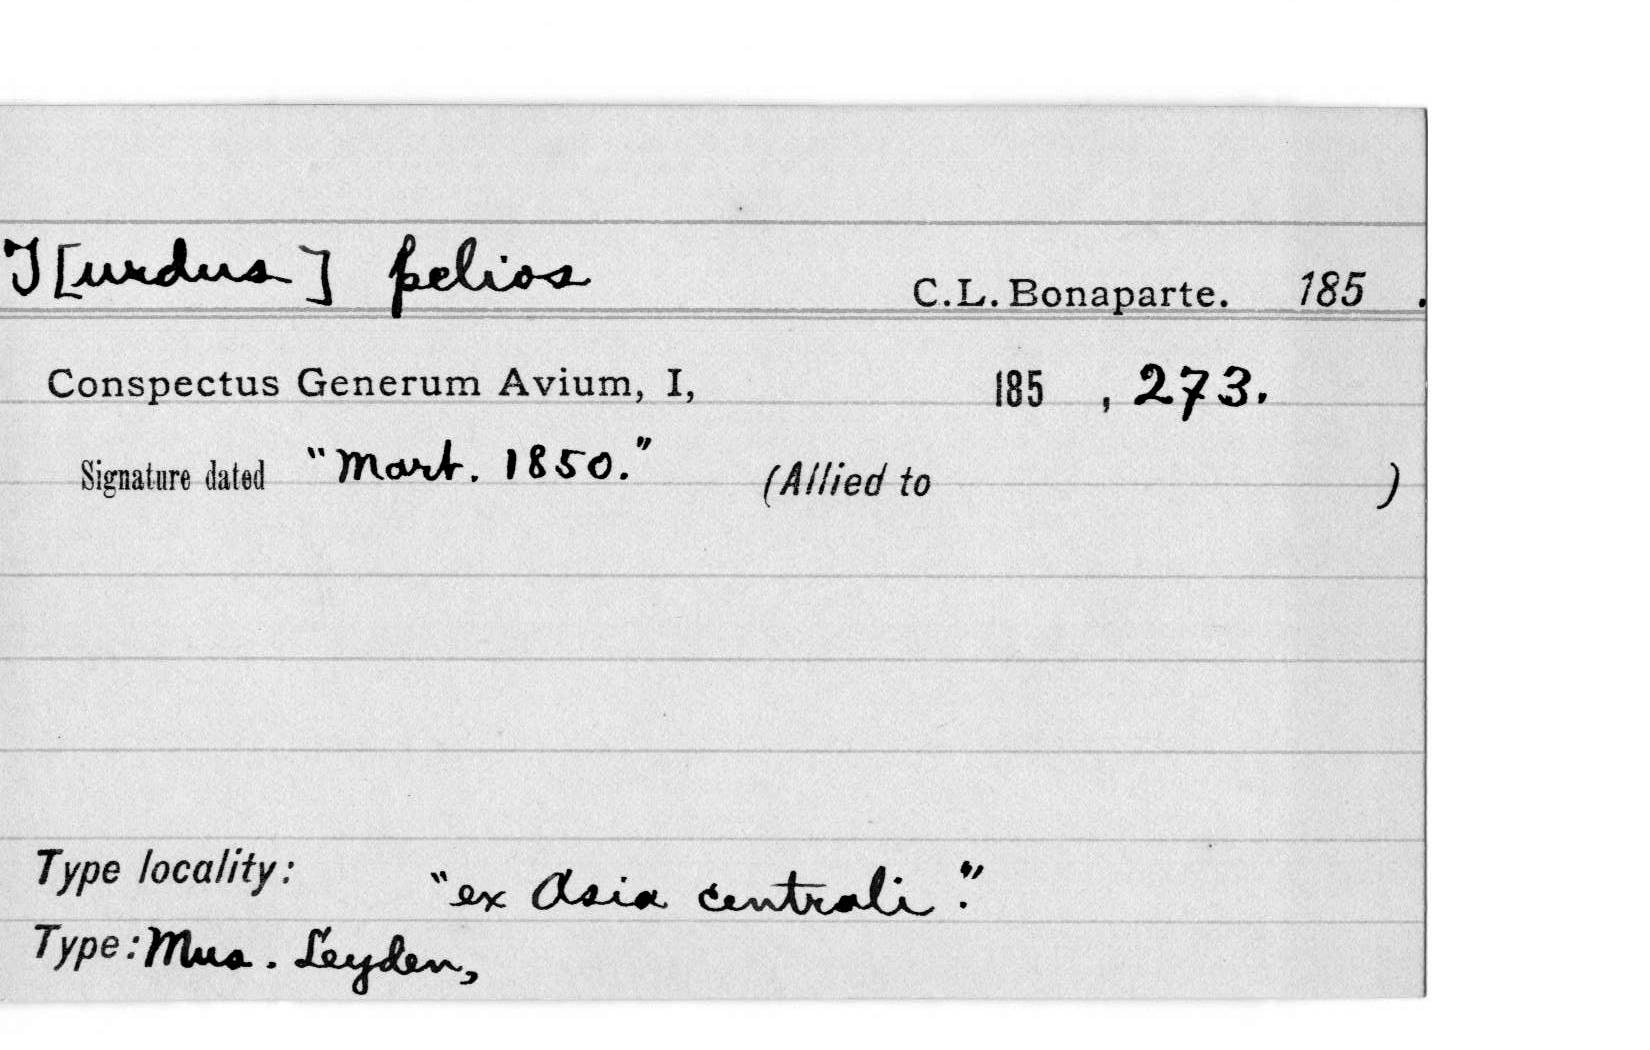 T[urdus] pelios C.L. Bonaparte. 185 .
Conspectus Generum Avium, I, 185 , 273.
Signature dated "Mart. 1850." (Allied to )
Type locality: "ex Asia centrali."
Type: Mus. Leyden,